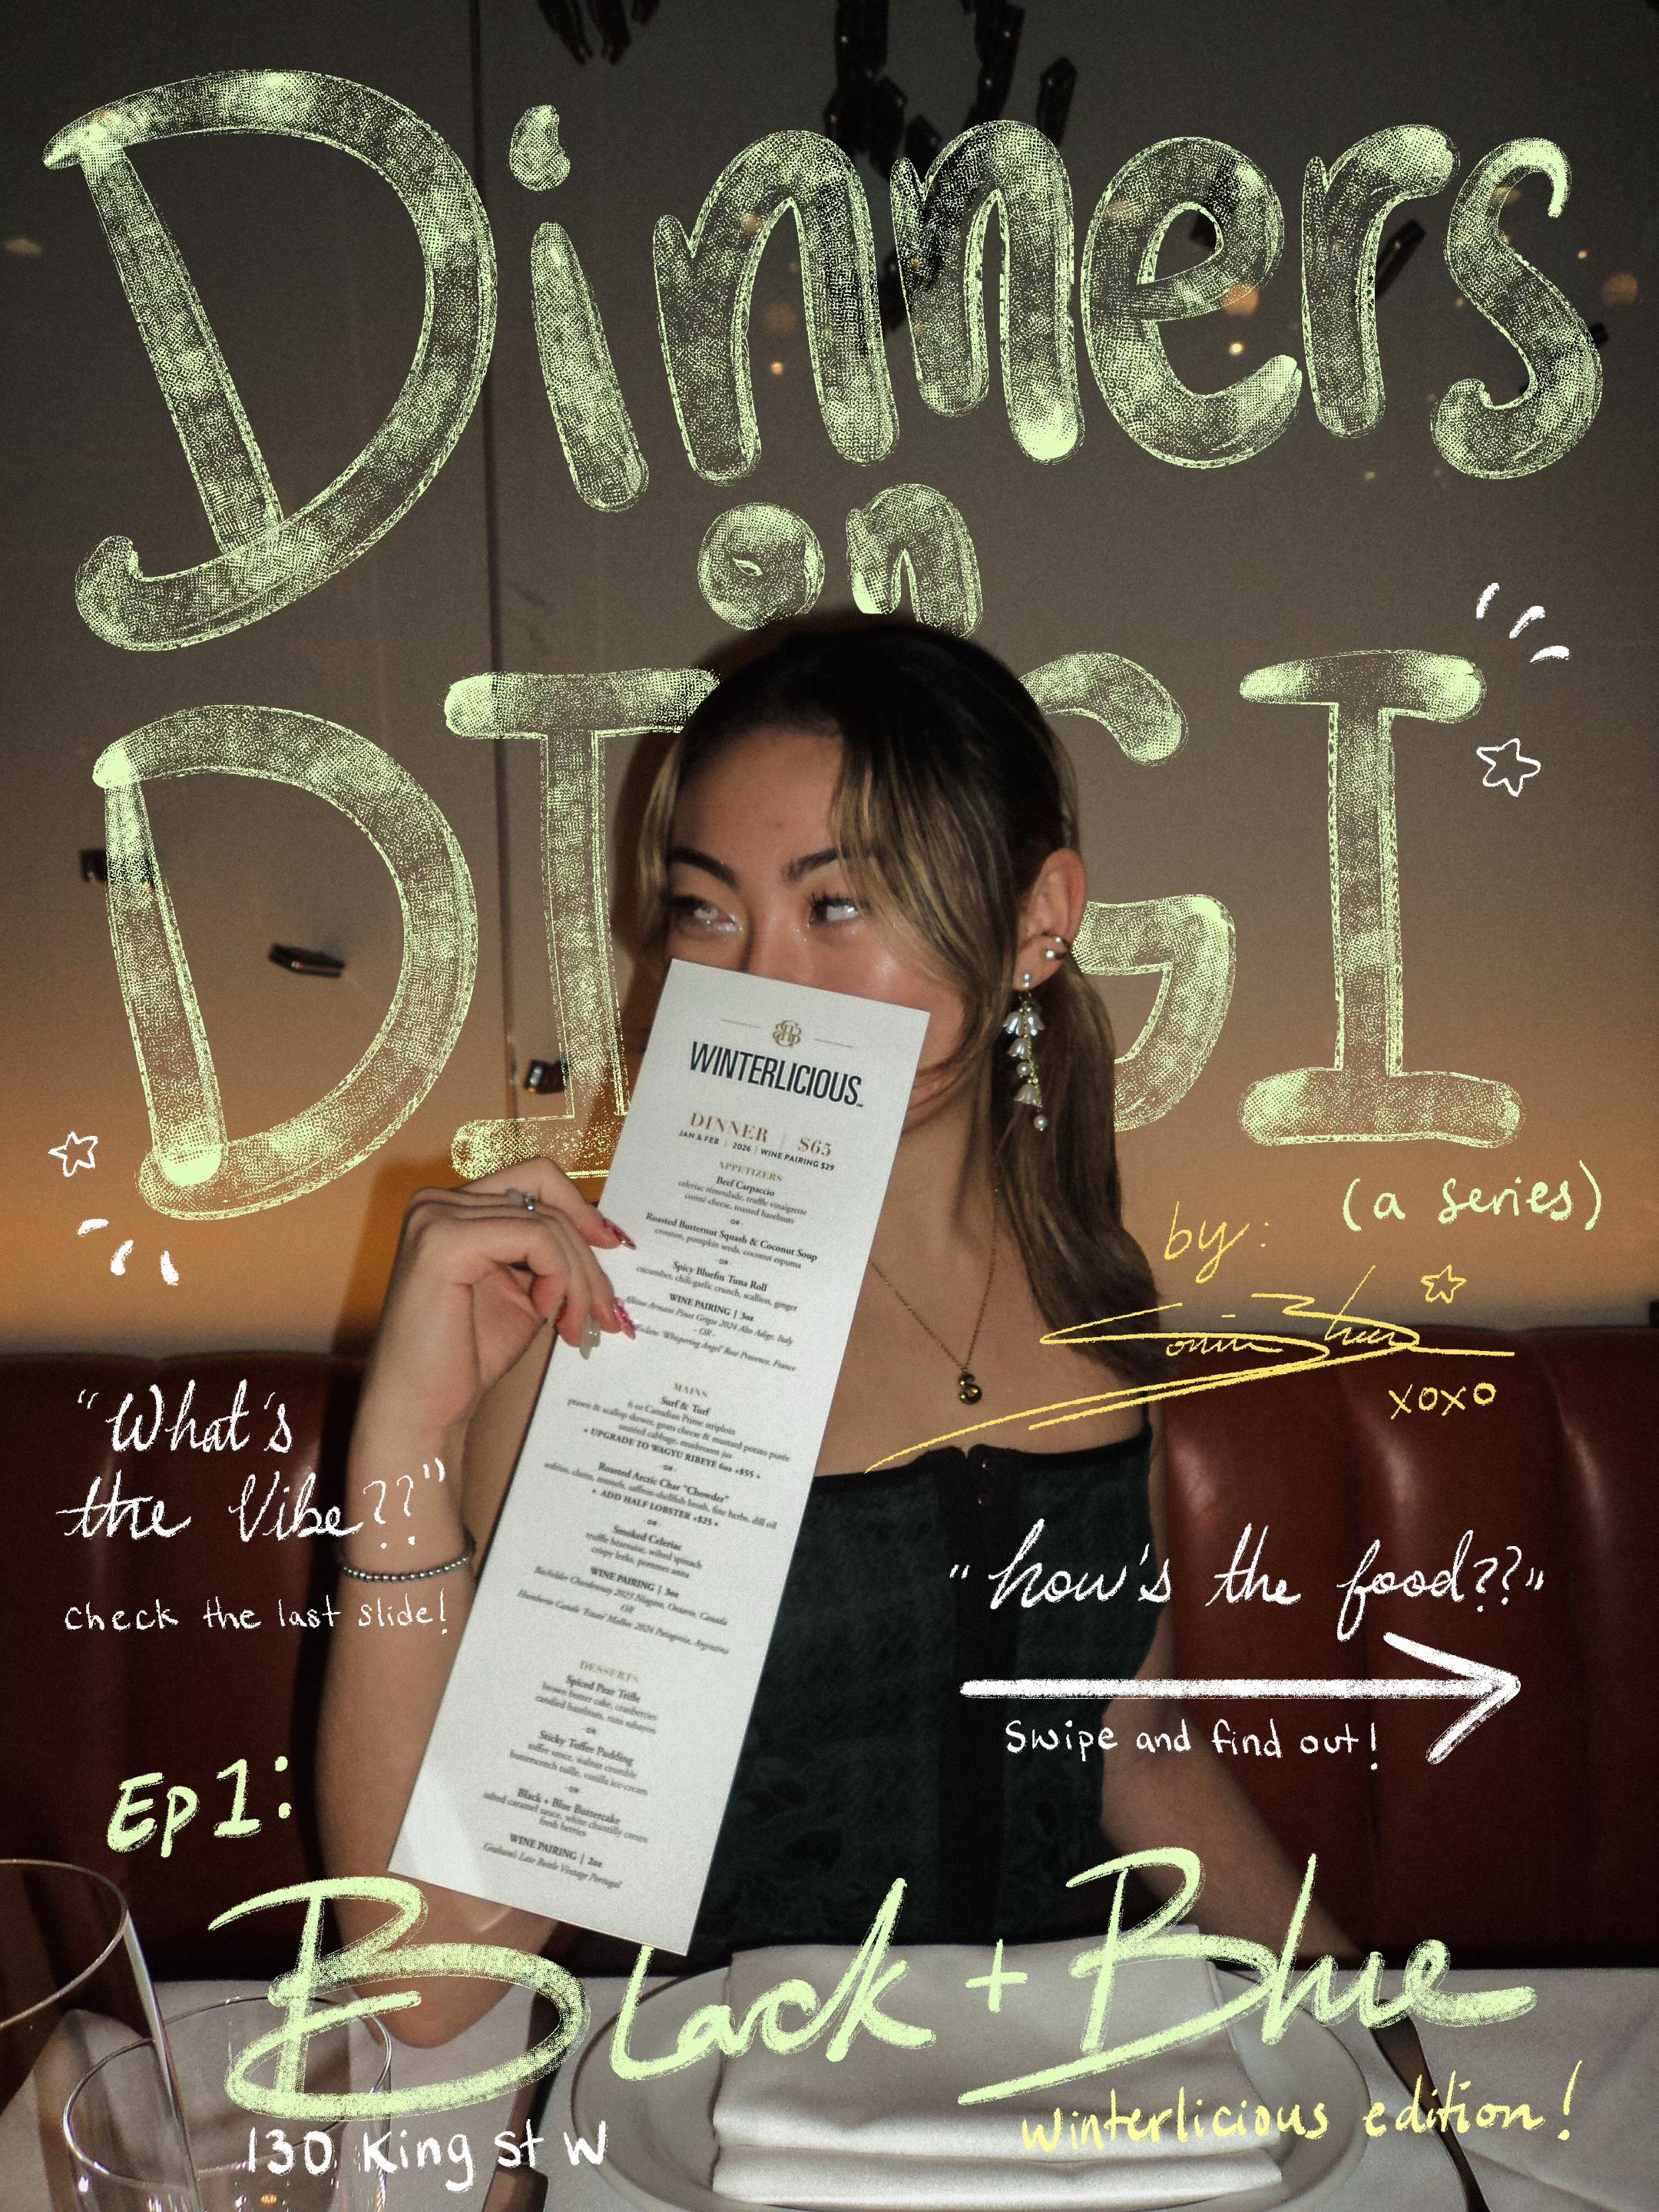 Dinners
in
DIGI
(a series)
by:
xoxo
WINTERLICIOUS
DINNER | $65
JAN & FEB | 2026 | WINE PAIRING $29
APPETIZERS
Beef Carpaccio
celeriac rémoulade, truffle vinaigrette
comté cheese, toasted hazelnuts
- OR -
Roasted Butternut Squash & Coconut Soup
crouton, pumpkin seeds, coconut espuma
- OR -
Spicy Bluefin Tuna Roll
cucumber, chili-garlic crunch, scallion, ginger
WINE PAIRING | 3oz
Albino Armani Pinot Grigio 2024 Alto Adige, Italy
- OR -
"Whispering Angel" Rosé Provence, France
MAINS
Surf & Turf
6 oz Canadian Prime striploin
prawn & scallop skewer, goats cheese & mustard potato purée
sautéed cabbage, mushroom jus
+ UPGRADE TO WAGYU RIBEYE 6oz +$55 +
- OR -
Roasted Arctic Char "Chowder"
clams, mussels, saffron-shellfish broth, fine herbs, dill oil
+ ADD HALF LOBSTER +$25 +
- OR -
Smoked Celeriac
truffle béarnaise, wilted spinach
crispy leeks, pommes anna
WINE PAIRING | 3oz
Bachelder Chardonnay 2023 Niagara, Ontario, Canada
OR
Malbec 2024 Patagonia, Argentina
DESSERTS
Spiced Pear Trifle
brown butter cake, cranberries
candied hazelnuts, rum sabayon
- OR -
Sticky Toffee Pudding
toffee sauce, walnut crumble
butterscotch tuille, vanilla ice-cream
- OR -
Black + Blue Buttercake
salted caramel sauce, white chantilly cream
fresh berries
WINE PAIRING | 2oz
Graham's Late Bottle Vintage Portugal
"What's
the Vibe??"
check the last slide!
"how's the food??"
Swipe and find out!
Ep 1:
Black + Blue
winterlicious edition!
130 King St W